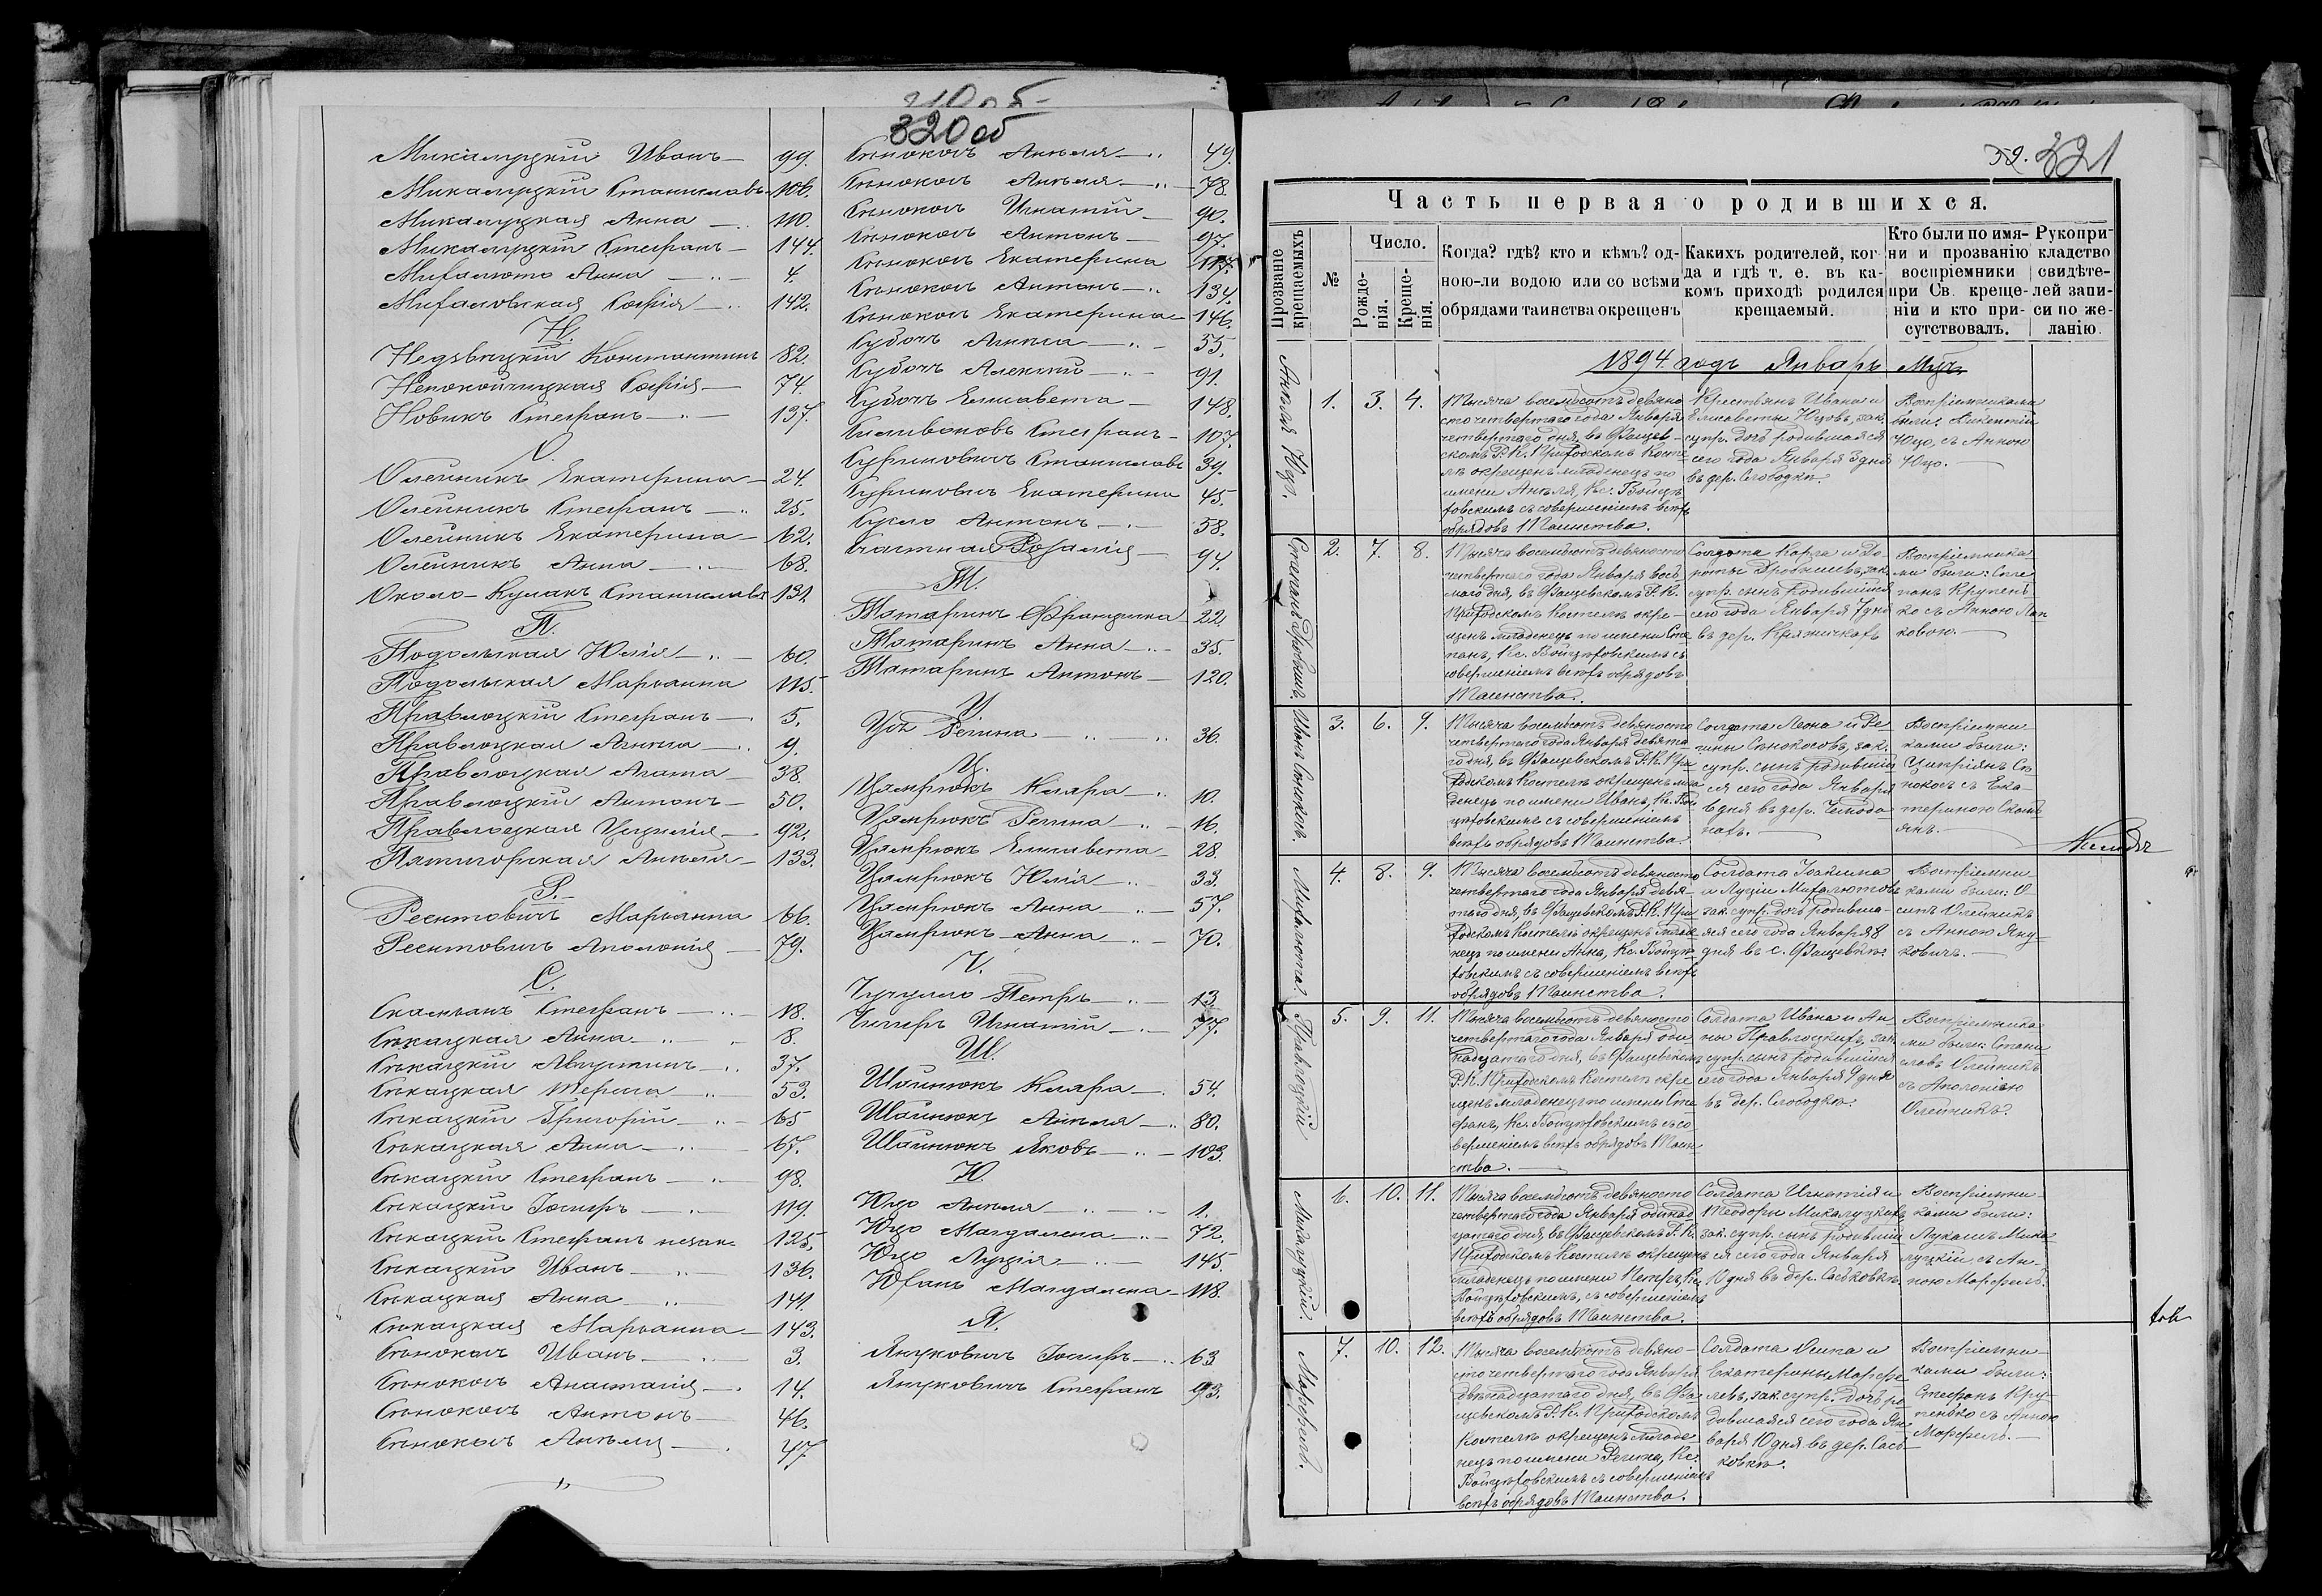 320 об
Микалуцкій Иванъ — 99.
Микалуцкій Станиславъ — 106.
Микалуцкая Анна — 110.
Микалуцкій Стефанъ — 144.
Михалюта Анна — 4.
Михаловская Софія — 142.
Н.
Недзвѣцкій Константинъ 82.
Непокойчицкая Софія — 74.
Новикъ Стефанъ — 137.
О.
Олейникъ Екатерина — 24.
Олейникъ Стефанъ — 25.
Олейникъ Екатерина — 62.
Олейникъ Анна — 68.
Около-Кулакъ Станиславъ 131.
П.
Подольская Юлія — 60.
Подольская Марьанна 115.
Правлоцкій Стефанъ — 5.
Правлоцкая Анна — 9.
Правлоцкая Агата — 38.
Правлоцкій Антонъ — 50.
Правлоцкая Цецилія — 92.
Пятигорская Анѣля — 133.
Р.
Реентовичъ Марьянна 66.
Реентовичъ Аполонія — 79.
С.
Скальянъ Стефанъ — 18.
Сѣкацкая Анна — 8.
Сѣкацкій Августинъ — 37.
Сѣкацкая Тереса — 53.
Сѣкацкій Григорій — 65
Сѣкацкая Анна — 67.
Сѣкацкій Стефанъ — 98.
Сѣкацкій Іосифъ — 119.
Сѣкацкій Стефанъ незак. 125.
Сѣкацкій Иванъ — 136.
Сѣкацкая Анна — 141.
Сѣкацкая Марьанна — 143.
Сѣнокосъ Иванъ — 3.
Сѣнокосъ Анастасія — 14.
Сѣнокосъ Антонъ — 46.
Сѣнокосъ Анѣля — 47
Сѣнокосъ Анѣля — 49.
Сѣнокосъ Анѣля — 78.
Сѣнокосъ Игнатій — 90.
Сѣнокосъ Антонъ — 97.
Сѣнокосъ Екатерина
Сѣнокосъ Антонъ — 134.
Сѣнокосъ Екатерина — 146.
Субочъ — 55.
Субочъ Алексій — 91.
Субочъ Елисавета — 148.
Селивоновъ Стефанъ — 107.
Суриновичъ Станиславъ 39.
Суриновичъ Екатерина 45.
Сусло Антонъ — 58.
Счастная Розалія — 94.
Т.
Татаринъ Франциска 22.
Татаринъ Анна — 35.
Татаринъ Антонъ — 120.
У.
Усъ Регина — 36.
Ц.
Цамрюкъ Клара — 10.
Цямрюкъ Регина — 16.
Цямрюкъ Елисавета — 28.
Цямрюкъ Юлія — 33.
Цямрюкъ Анна — 57.
Цямрюкъ Анна — 70.
Ч.
Чучулло Петръ — 13.
Игнатій — 77.
Ш.
Шайнюкъ Клара — 54.
Шайнюкъ Анѣля — 80.
Шайнюкъ Яковъ — 103.
Ю.
Юцо Анѣля — 1.
Юцо Магдалена — 72.
Юцо Луція — 145.
Магдалена — 118.
Я.
Януковичъ Іосифъ — 63
Януковичъ Стефанъ 93.
59. 321
Часть первая о родившихся.
Прозваніе крещаемыхъ
№
Число.
Рожде-
нія.
Креще-
нія.
Когда? гдѣ? кто и кѣмъ? од-
ною-ли водою или со всѣми
обрядами таинства окрещенъ
Какихъ родителей, ког-
да и гдѣ т. е. въ ка-
комъ приходѣ родился
крещаемый.
Кто были по имя-
ни и прозванію
воспріемники
при Св. креще-
ніи и кто при-
сутствовалъ.
Рукопри-
кладство
свидѣте-
лей запи-
си по же-
ланію.
1894 годъ Январь Мцъ
Анѣля Юцо.
1. 3. 4.
Тысяча восемьсотъ девяно
сто четвертаго года Января
четвертаго дня, въ Фащев-
скомъ Р. К. Приходскомъ Косте
лѣ окрещенъ младенецъ по
имени Анѣля, Кс. Войцѣ
ховскимъ съ совершеніемъ всѣхъ
обрядовъ Таинства.
Крестьянъ Ивана и
Елисаветы Юцовъ, зак.
супр. дочь родившаяся
сего года Января 3 дня
въ дер. Слободкѣ
Воспріемниками
были: Викентій
Юцо, съ Анною
Юцо.
Степанъ
2. 7. 8.
Тысяча восемьсотъ девяносто
четвертаго года Января вось
маго дня, въ Фащевскомъ Р. К.
Приходскомъ Костелѣ окре-
щенъ младенецъ по имени Сте
панъ, Кс. Войцѣховскимъ съ
совершеніемъ всѣхъ обрядовъ
Таинства.
Солдата Карла и До-
роты зак.
супр. сынъ родившійся
сего года Января 7 дня
въ дер.
Воспріемника-
ми были: Сте
панъ Крупень
ко съ Анною Пан
ковою.
Иванъ Сѣнокосъ.
3. 6. 9.
Тысяча восемьсотъ девяносто
четвертаго года Января девята
го дня, въ Фащевскомъ Р. К. При
ходскомъ Костелѣ окрещенъ мла
денецъ по имени Иванъ, Кс. Вой
цѣховскимъ съ совершеніемъ
всѣхъ обрядовъ Таинства.
Солдата Леона и Ре
гины Сѣнокосовъ, зак.
супр. сынъ родивші
ся сего года Января
6 дня въ дер. Чемода
нахъ.
Воспріемни
ками были:
Ципріянъ Сѣ
нокосъ съ Ека-
териною Скаль
янъ.
Михалюта.
4. 8. 9.
Тысяча восемьсотъ девяносто
четвертаго года Января девя-
таго дня, въ Фащевскомъ Р. К. При
ходскомъ Костелѣ окрещенъ младе
нецъ по имени Анна, Кс. Войцѣ
ховскимъ съ совершеніемъ всѣхъ
обрядовъ Таинства.
Солдата Іоакима
и Луціи Михалютовъ
зак. супр. дочь родивша-
яся сего года Января 8
дня въ с. Фащевкѣ.
Воспріемни
ками были: О
сипъ Олейникъ
съ Анною Яну-
ковичъ.
Правлоцкій
5. 9. 11.
Тысяча восемьсотъ девяносто
четвертаго года Января оди
надцатаго дня, въ Фащевскомъ
Р. К. Приходскомъ Костелѣ окре
щенъ младенецъ по имени Сте
фанъ, Кс. Войцѣховскимъ съ со
вершеніемъ всѣхъ обрядовъ Таин
ства.
Солдата Ивана и Ан
ны Правлоцкихъ, зак.
супр. сынъ родившійся
сего года Января 9 дня
въ дер. Слободкѣ.
Воспріемника
ми были: Стани
славъ Олейникъ
съ Аполоніею
Олейникъ.
Микалуцкій.
6. 10. 11.
Тысяча восемьсотъ девяносто
четвертаго года Января одинад
цатаго дня, въ Фащевскомъ Р. К.
Приходскомъ Костелѣ окрещенъ
младенецъ по имени Петръ, Кс.
Войцѣховскимъ, съ совершеніемъ
всѣхъ обрядовъ Таинства.
Солдата Игнатія и
Теодоры Микалуцкихъ
зак. супр. сынъ родивші
ся сего года Января
10 дня въ дер. Саськовкѣ
Воспріемни-
ками были:
Лукашъ Мика
луцкій, съ Ан-
ною Марфель.
Марфель.
7. 10. 12.
Тысяча восемьсотъ девяно-
сто четвертаго года Января
двѣнадцатаго дня, въ Фа
щевскомъ Р. К. Приходскомъ
Костелѣ окрещенъ младе
нецъ по имени Регина, Кс.
Войцѣховскимъ съ совершеніемъ
всѣхъ обрядовъ Таинства.
Солдата Осипа и
Екатерины Марфе
левъ, зак. супр. дочь ро
дившаяся сего года Ян
варя 10 дня въ дер. Сась-
ковкѣ.
Воспріемни-
ками были:
Стефанъ Кру-
пенько съ Анною
Марфель.